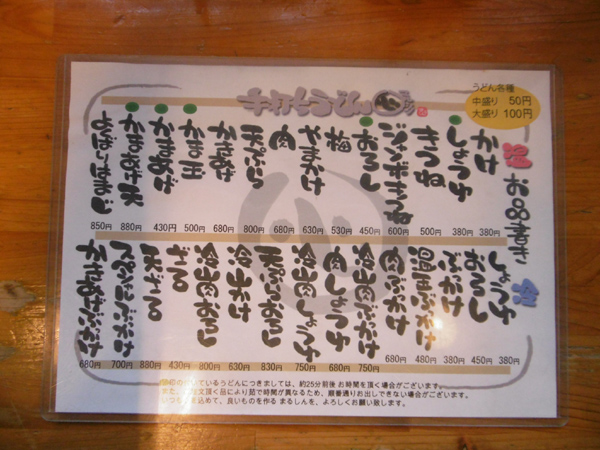 手打ちうどん
うどん各種
中盛り 50円
大盛り 100円
お品書き
温
かけ 380円
しょうゆ 380円
きつね 500円
ジャンボきつね 600円
おろし 450円
梅 530円
やまかけ 630円
肉 680円
天ぷら 800円
かきあげ 680円
かま玉 500円
かまあげ 430円
かまあげ天 880円
よくばり 850円
冷
しょうゆ 380円
おろし 450円
ぶっかけ 380円
温玉ぶっかけ 480円
肉ぶっかけ 680円
冷肉ぶっかけ 750円
肉しょうゆ 680円
冷肉しょうゆ 750円
天ぷらおろし 830円
冷山かけ 630円
冷肉おろし 800円
ざる 430円
天ざる 880円
スペシャルぶっかけ 700円
かきあげぶっかけ 680円
いているうどんにつきましては、約25分前後 お時間を頂く場合がございます。
また、ご注文頂く品により茹で時間が異なるため、順番通りお出しできない場合がございます。
込めて、良いものを作る まるしんを、よろしくお願い致します。